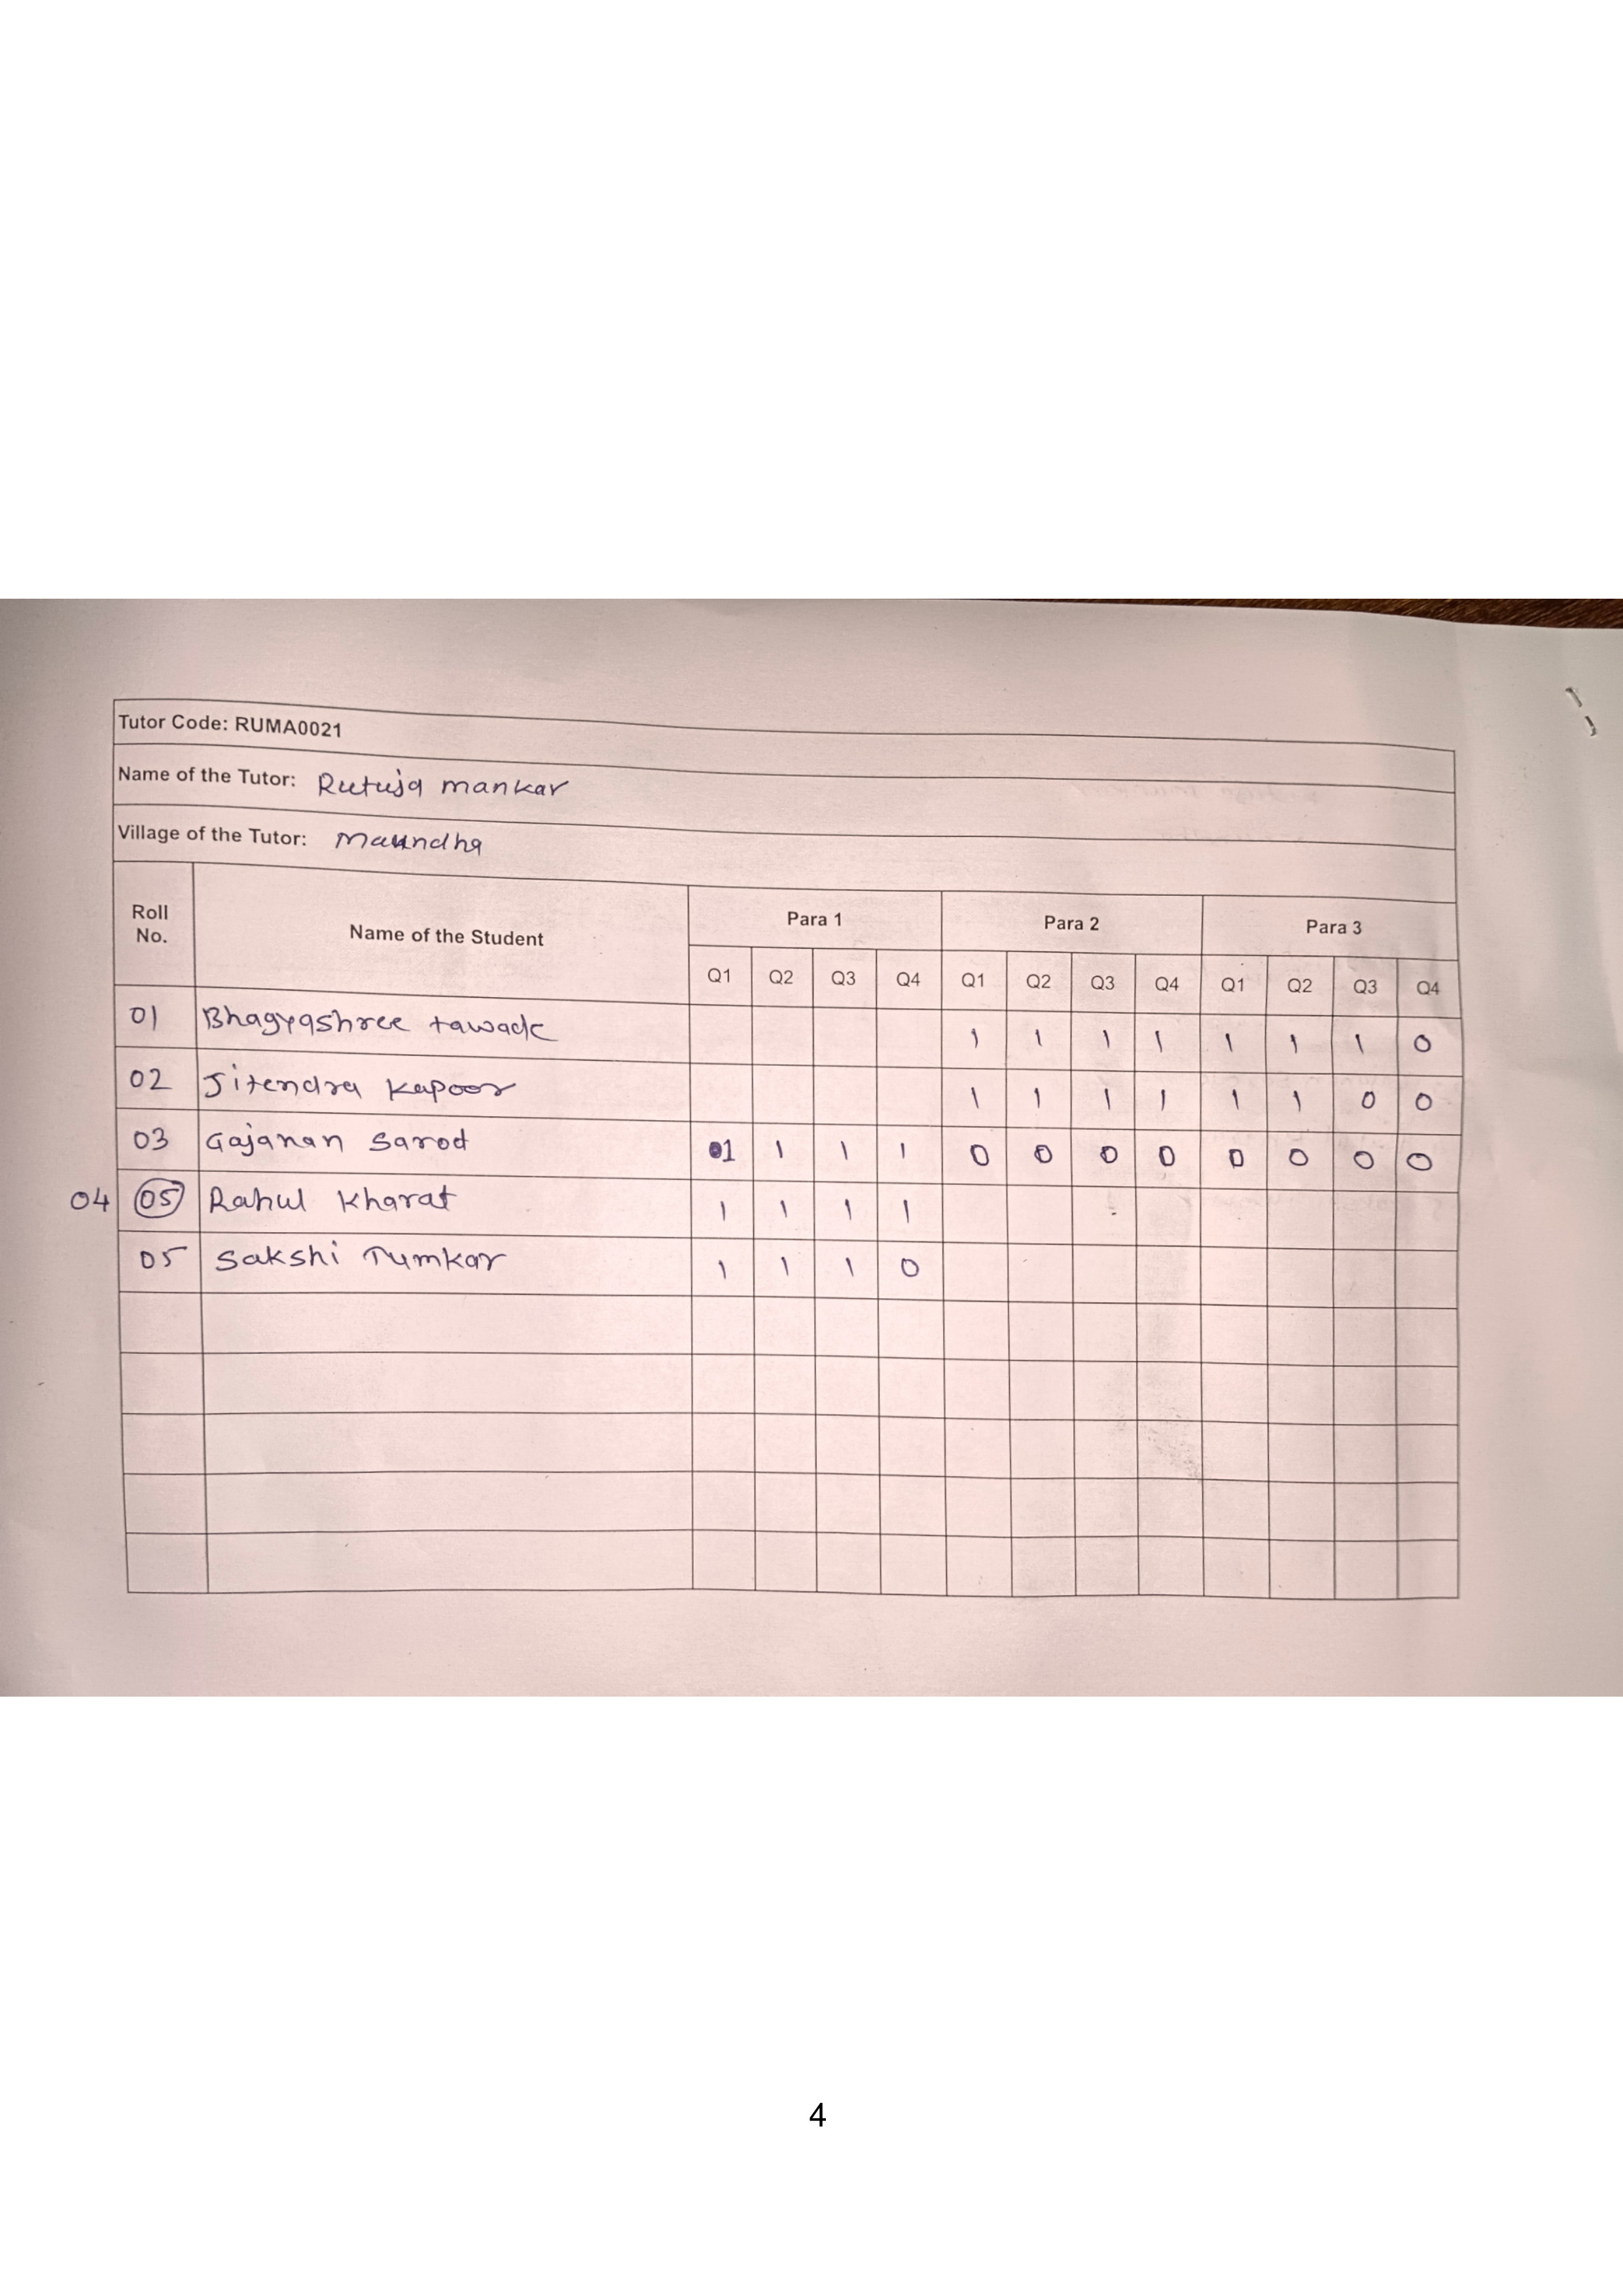 Tutor Code: RUMA0021
Name of the Tutor: Rutuja mankar
Village of the Tutor: Maundha
Roll No. Name of the Student Para 1 Para 2 Para 3
Q1 Q2 Q3 Q4 Q1 Q2 Q3 Q4 Q1 Q2 Q3 Q4
01 Bhagyashree tawade 1 1 1 1 1 1 1 0
02 Jitendra Kapoor 1 1 1 1 1 1 0 0
03 Gajanan Sarod 1 1 1 1 0 0 0 0 0 0 0 0
04 05 Rahul Kharat 1 1 1 1
05 Sakshi Tumkar 1 1 1 0
4